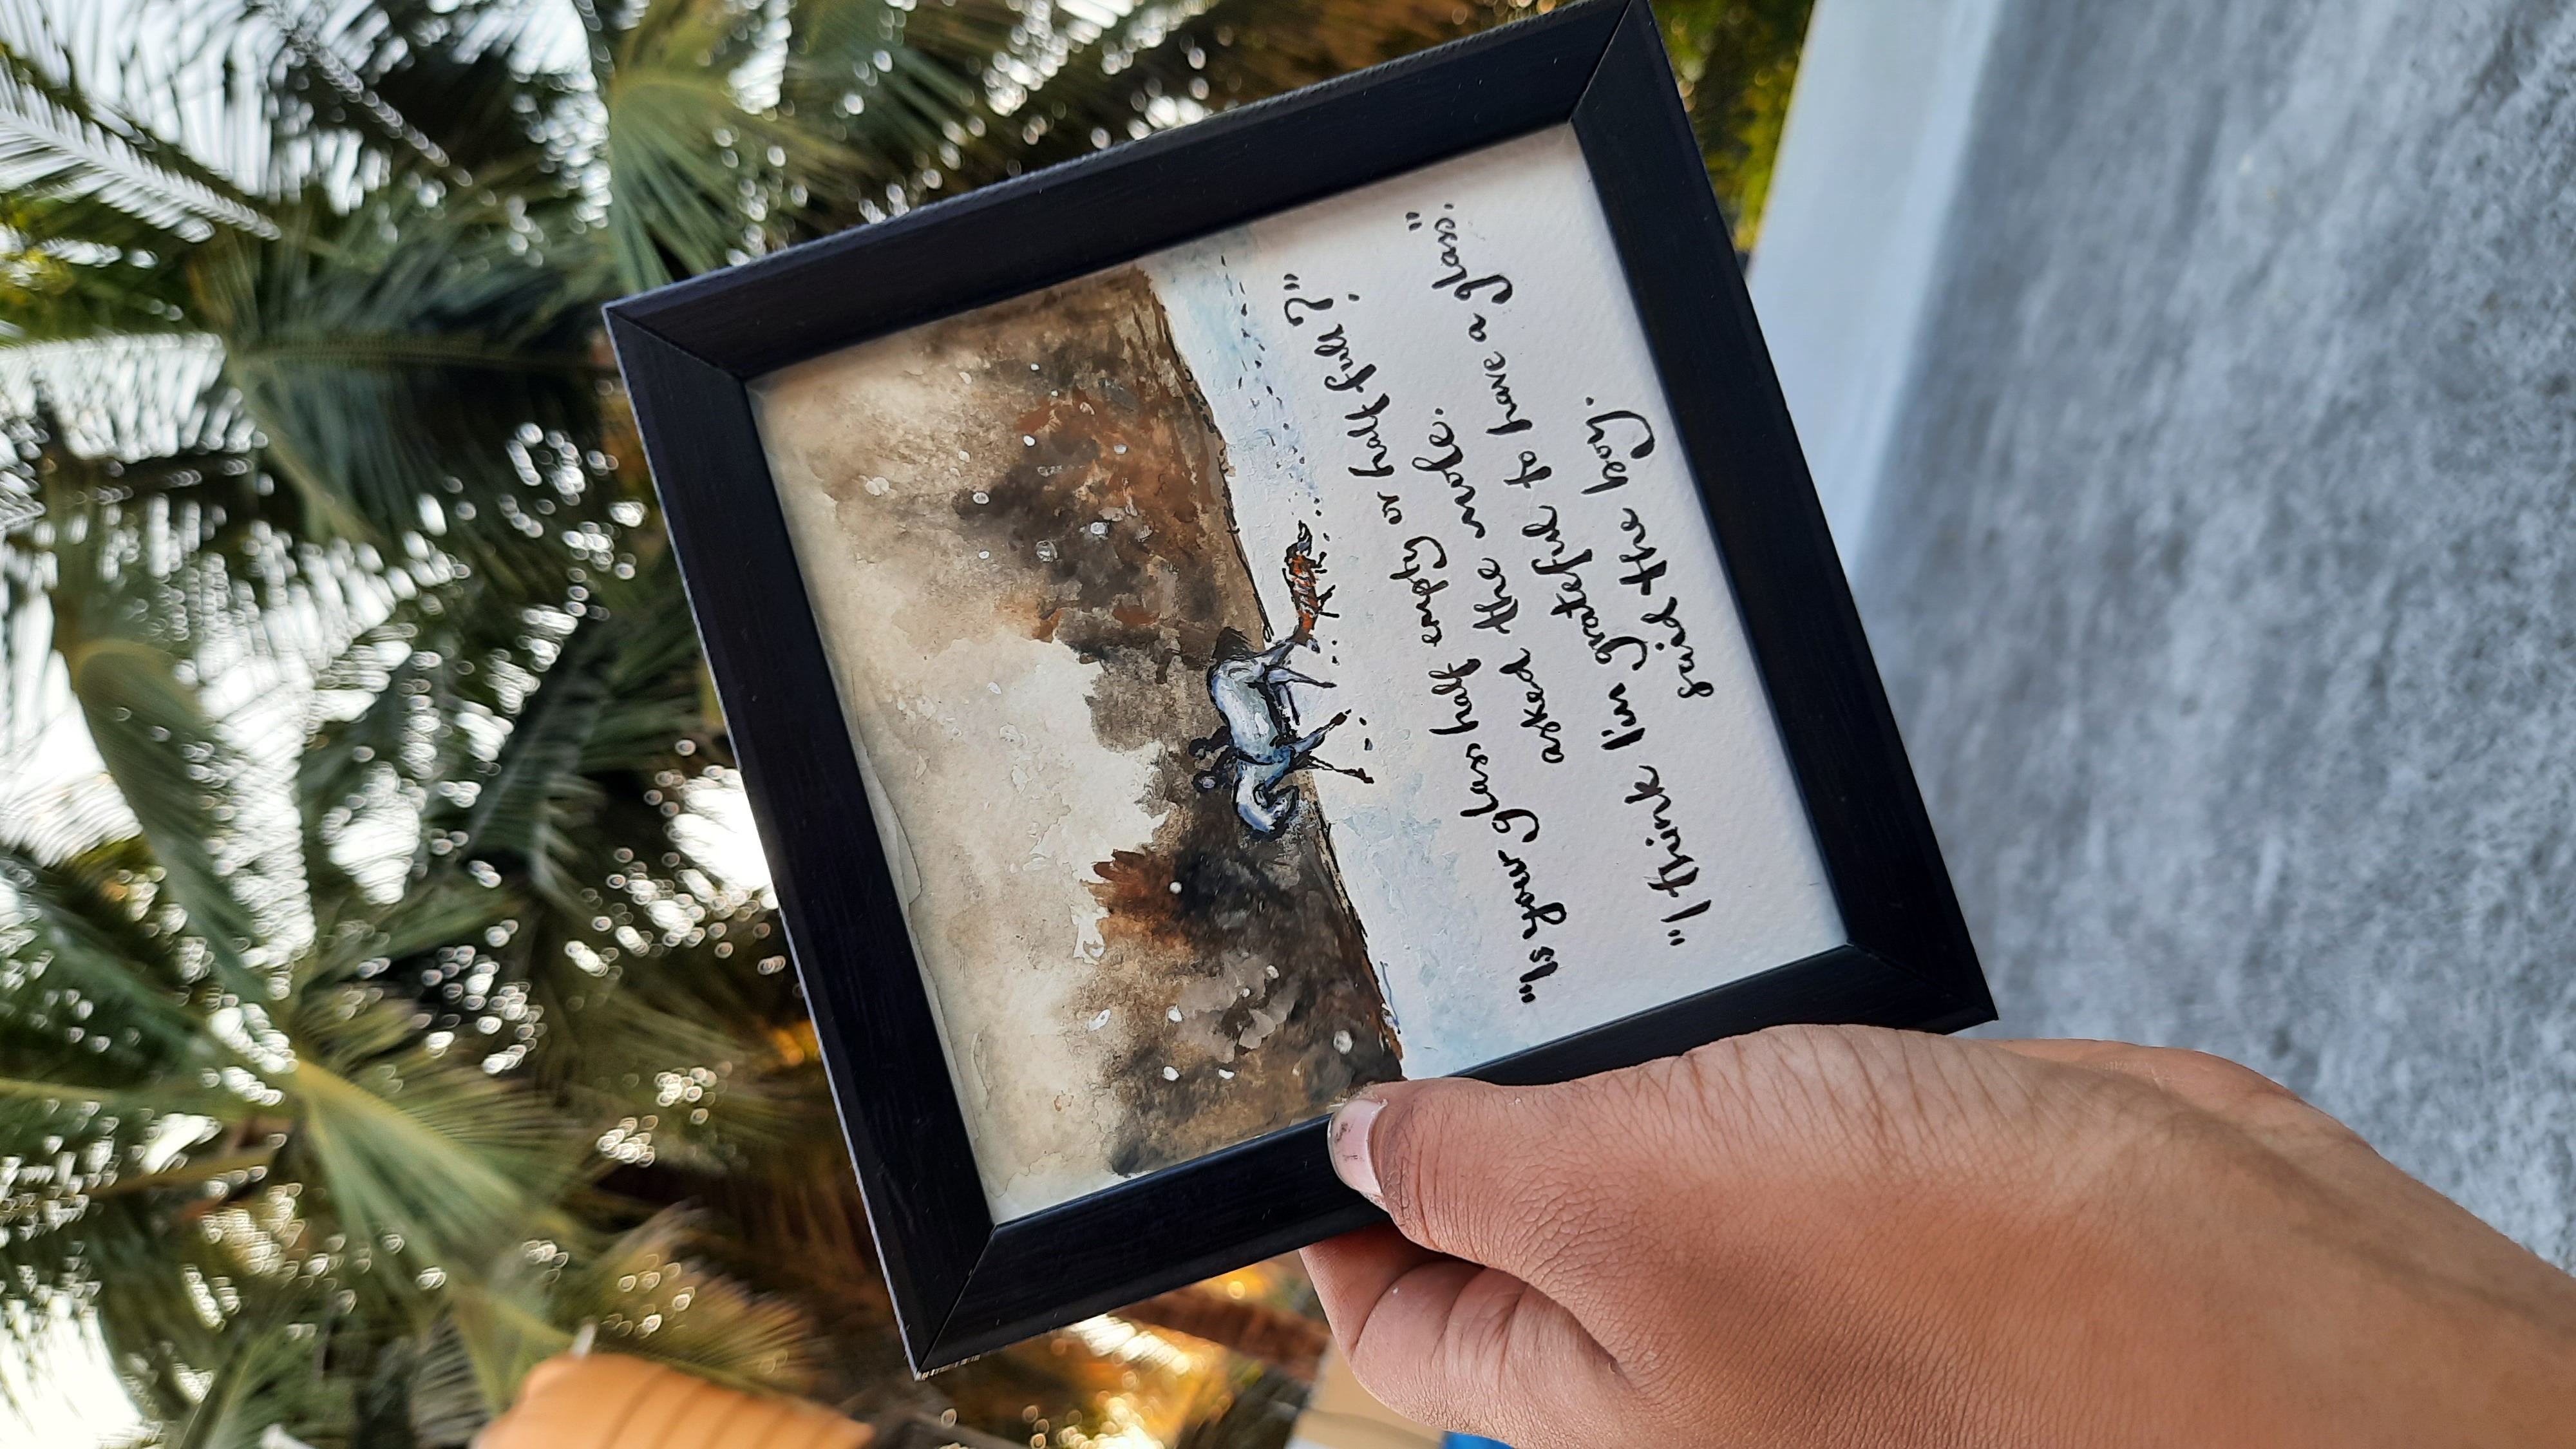 "Is your glass half empty or half full?"
asked the mole.
"I think I'm grateful to have a glass".
said the boy.